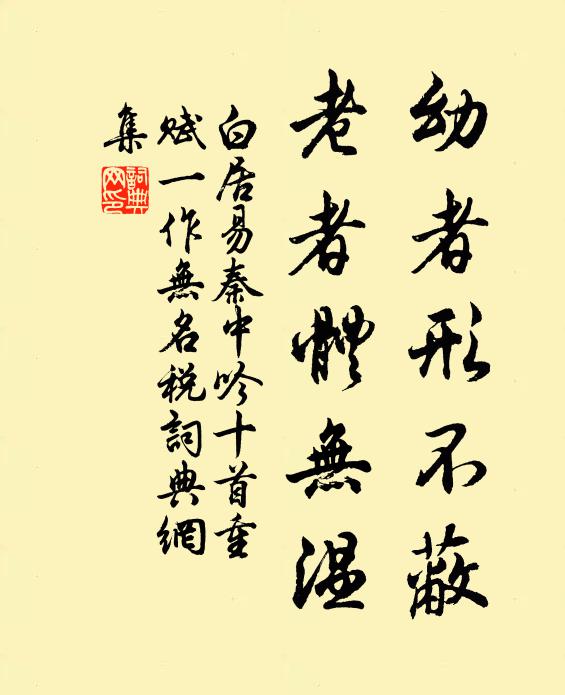 幼者形不蔽
老者體無溫
白居易秦中吟十首重
賦一作無名税詞典網
集
詞典
网印